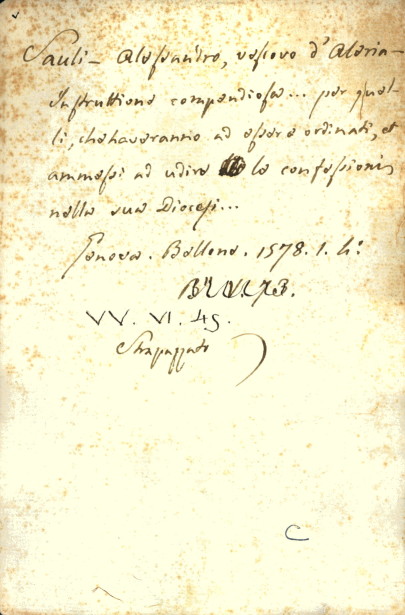 Sauli - Alessandro, vescovo d'Aleria -
Instruttione compendiosa... per quel-
li, che haveranno ad essere ordinati, et
ammessi ad udire le confessioni
nella sua Diocesi...
Genova. Bellone. 1578. 1. h.
VV. VI. 45.
Strapazzato
C